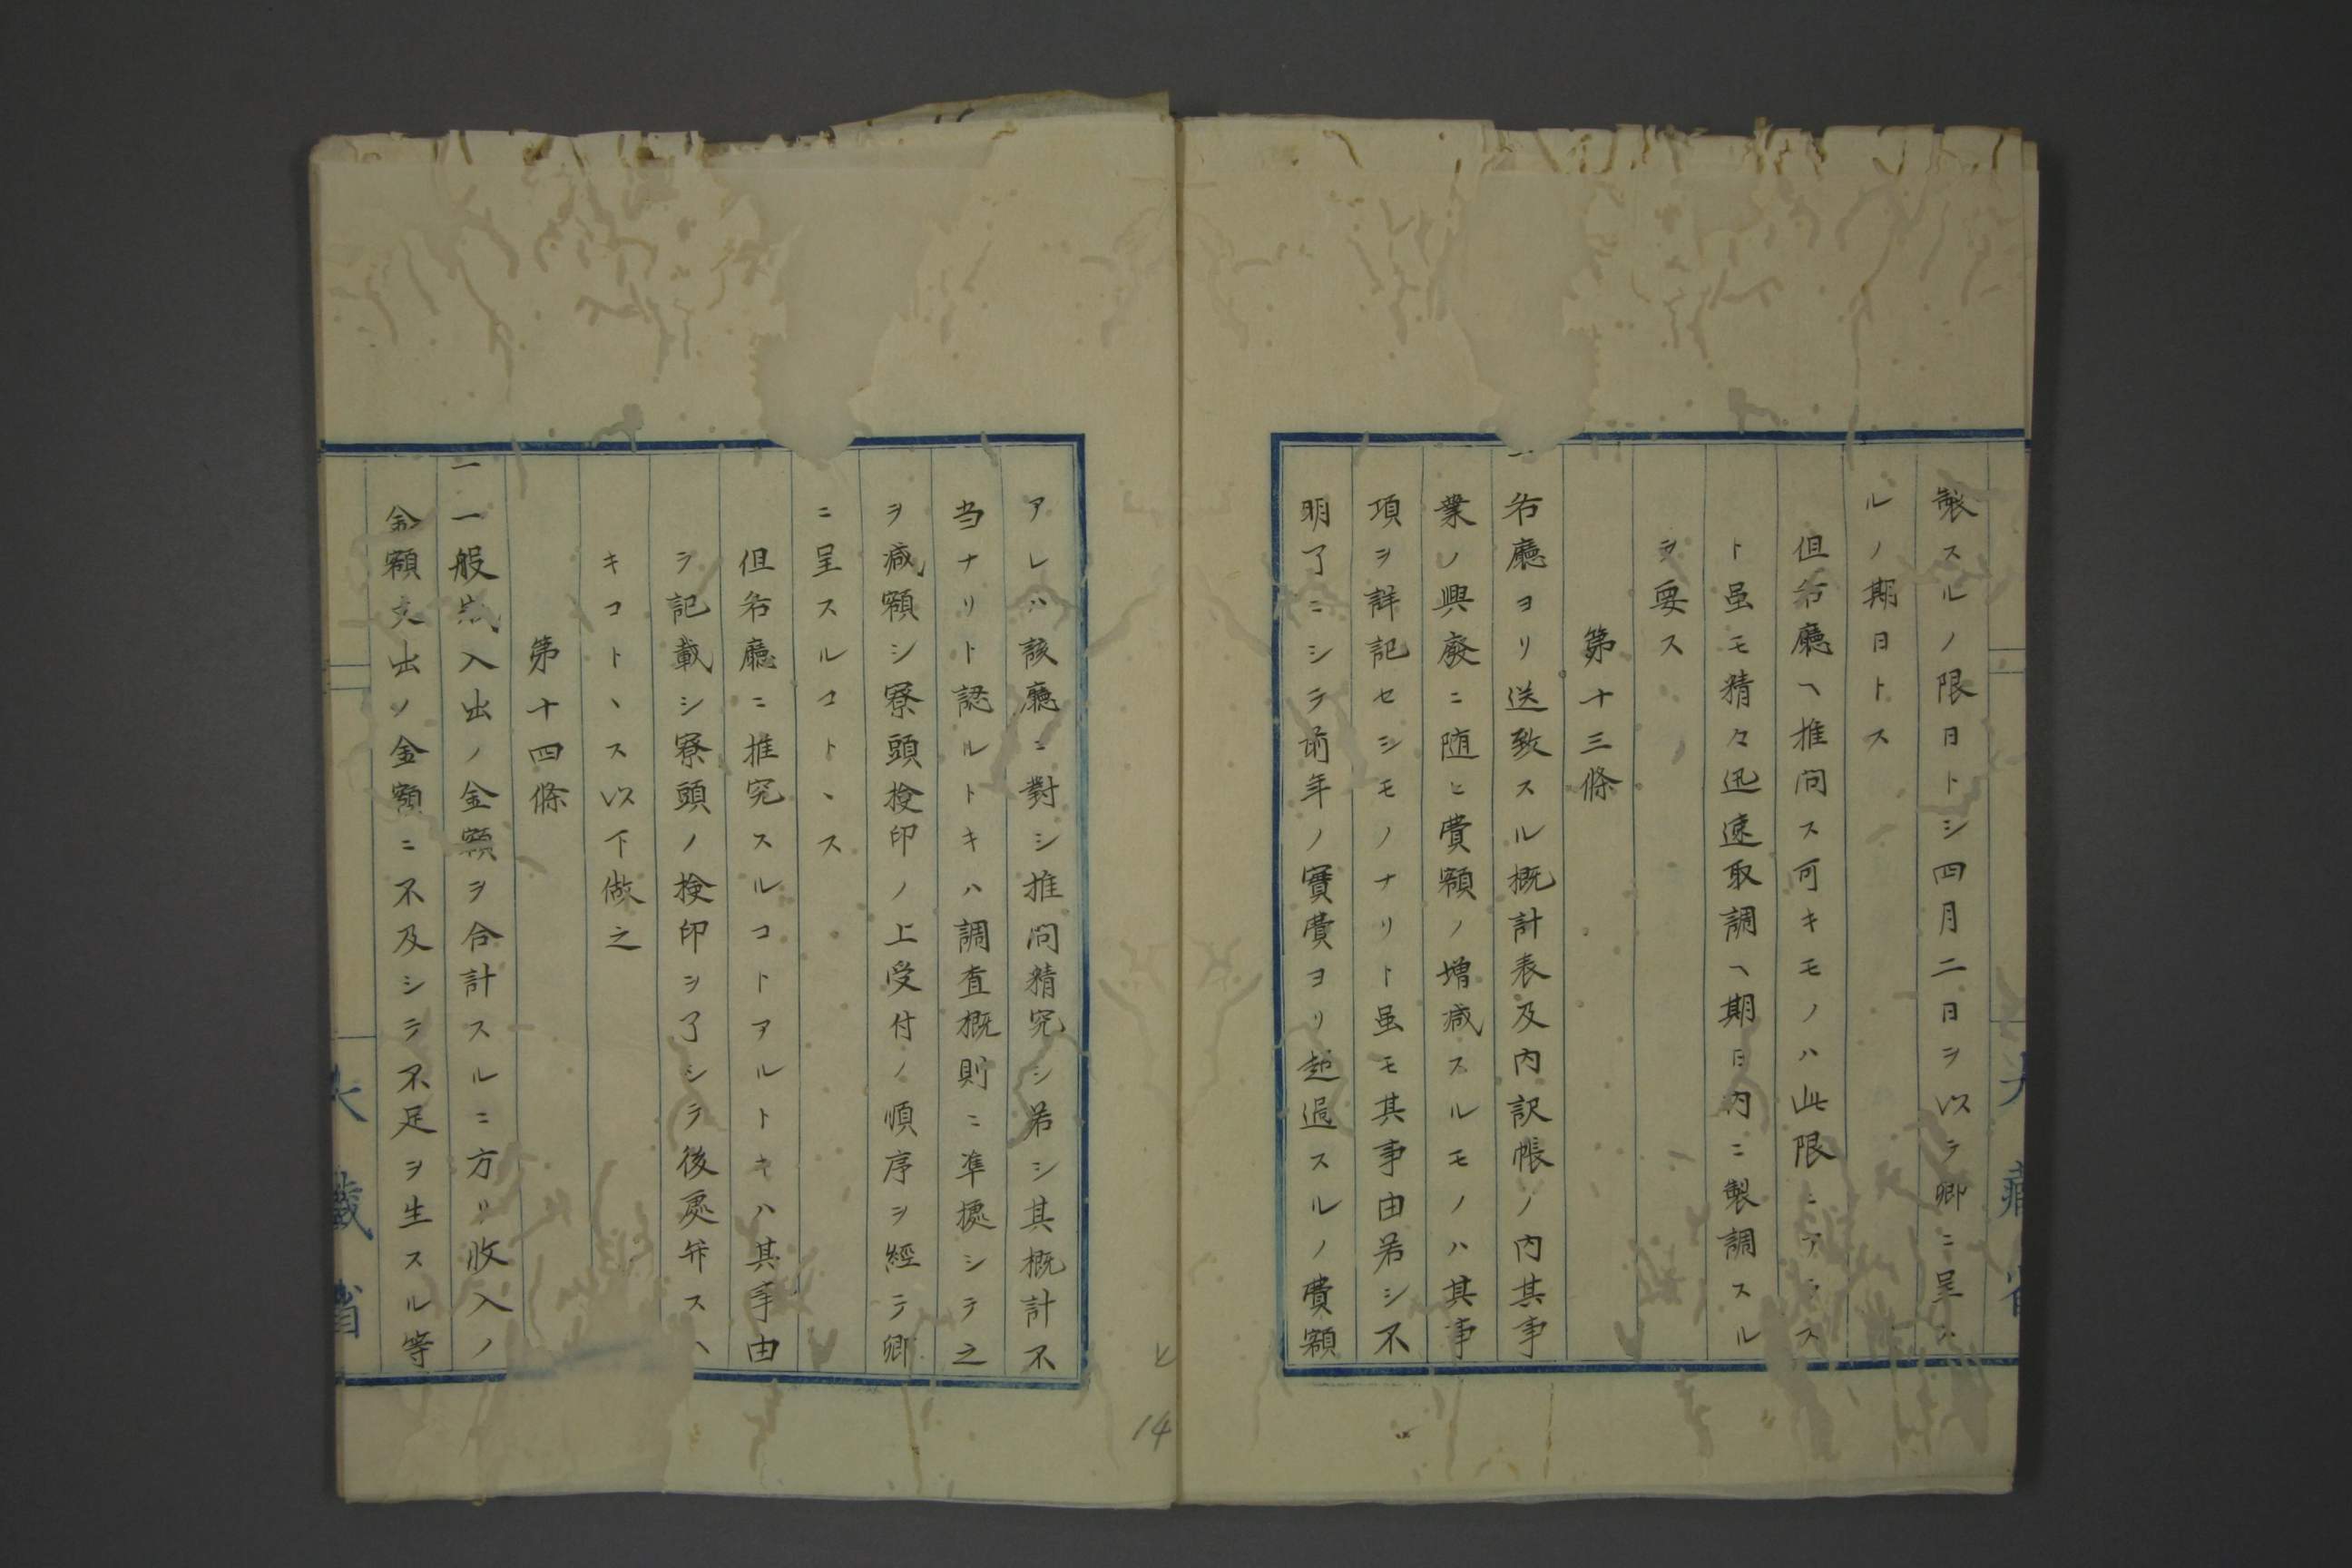 製スルノ限日トシ四月二日ヲ以テ卿ニ呈ス
ルノ期日トス
但各廳ヘ推問ス可キモノハ此限ニアラス
ト虽モ精々迅速取調ヘ期日内ニ製調スル
ヲ要ス
第十三條
一各廳ヨリ送致スル概計表及内訳帳ノ内其事
業ノ興廢ニ随ヒ費額ノ増減スルモノハ其事
項ヲ詳記セシモノナリト虽モ其事由若シ不
明了ニシテ前年ノ實費ヨリ超過スルノ費額
アレハ該廳ニ對シ推問精究シ若シ其概計不
当ナリト認ルトキハ調査概則ニ準據シテ之
ヲ减額シ寮頭検印ノ上受付ノ順序ヲ經テ卿
ニ呈スルコトヽス
但各廳ニ推究スルコトアルトキハ其事由
ヲ記載シ寮頭ノ検印ヲ了シテ後處弁スヘ
キコトヽス以下倣之
第十四條
一一般歳入出ノ金額ヲ合計スルニ方リ收入ノ
金額支出ノ金額ニ不及シテ不足ヲ生スル等
大藏省
14